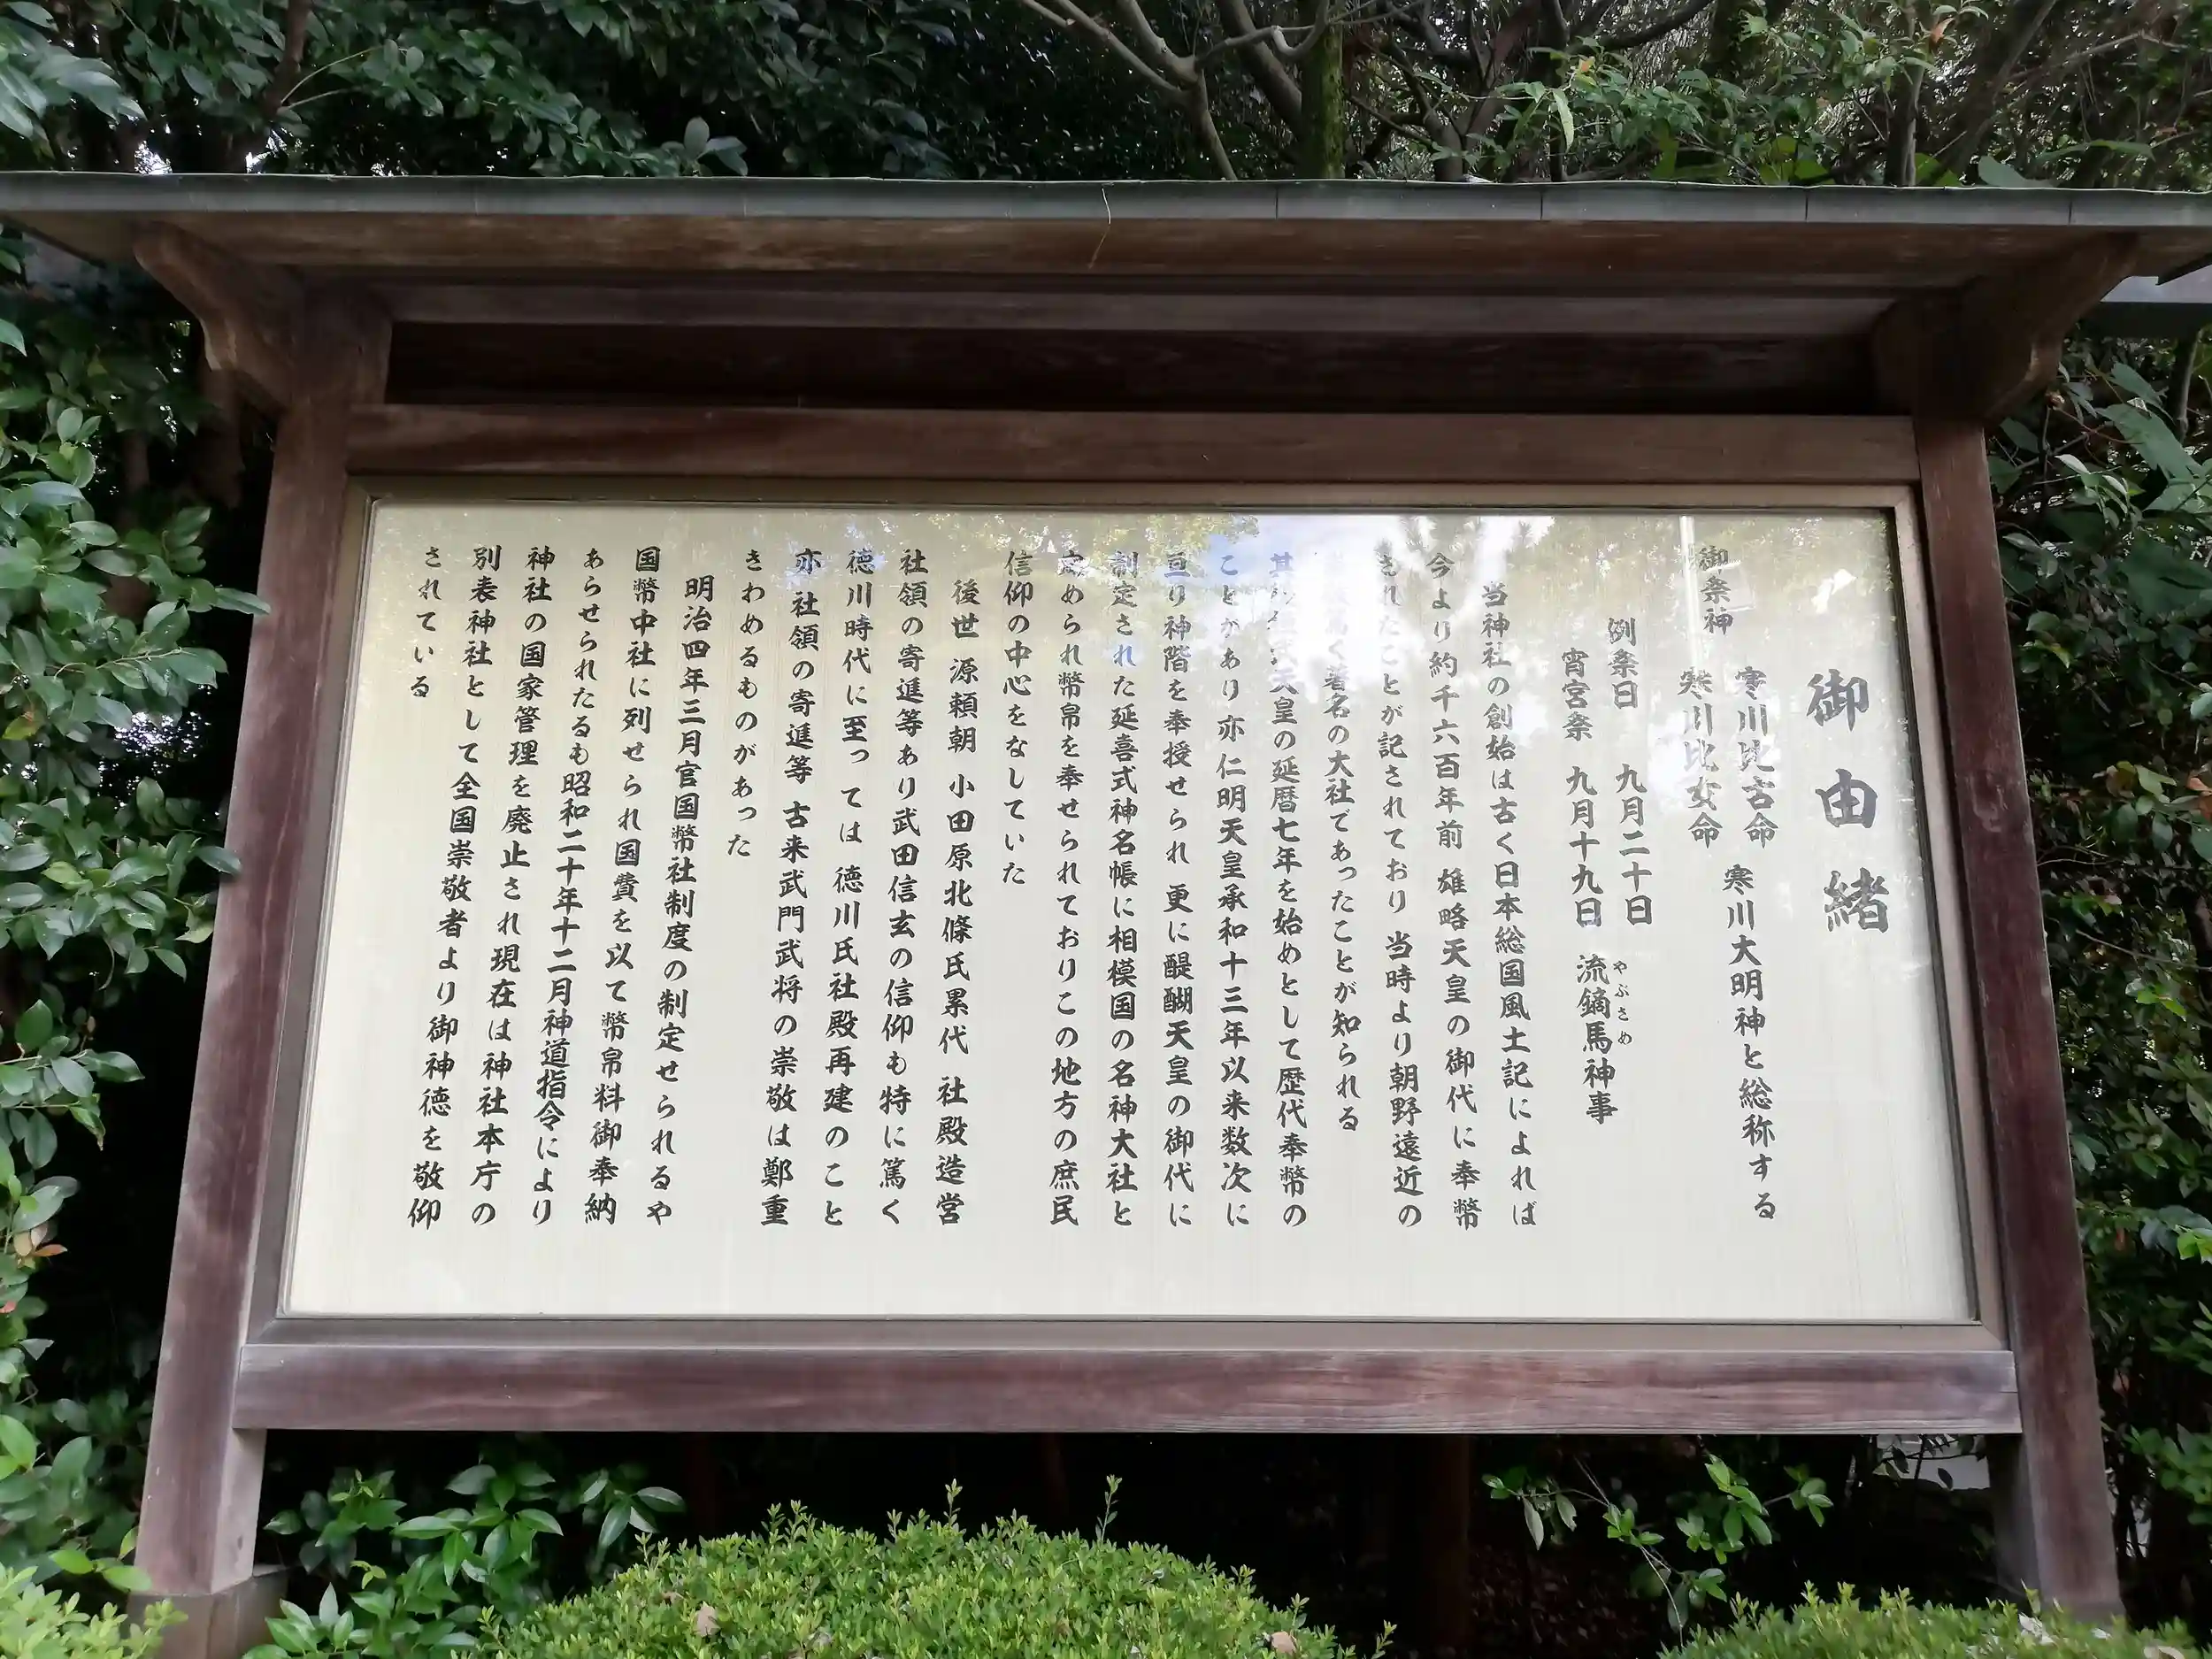 御由緒
御祭神 寒川比古命 寒川大明神と総称する
寒川比女命
例祭日 九月二十日
宵宮祭 九月十九日 流鏑馬神事
やぶさめ
当神社の創始は古く日本総国風土記によれば
今より約千六百年前 雄略天皇の御代に奉幣
されたことが記されており 当時より朝野遠近の
く著名の大社であったことが知られる
其の後 天皇の延暦七年を始めとして歴代奉幣の
ことがあり 亦仁明天皇承和十三年以来数次に
亘り神階を奉授せられ 更に醍醐天皇の御代に
制定された延喜式神名帳に相模国の名神大社と
定められ幣帛を奉せられておりこの地方の庶民
信仰の中心をなしていた
後世 源頼朝 小田原北條氏累代 社殿造営
社領の寄進等あり武田信玄の信仰も特に篤く
徳川時代に至っては 徳川氏社殿再建のこと
亦社領の寄進等 古来武門武将の崇敬は鄭重
きわめるものがあった
明治四年三月官国幣社制度の制定せられるや
国幣中社に列せられ国費を以て幣帛料御奉納
あらせられたるも昭和二十年十二月神道指令により
神社の国家管理を廃止され現在は神社本庁の
別表神社として全国崇敬者より御神徳を敬仰
されている